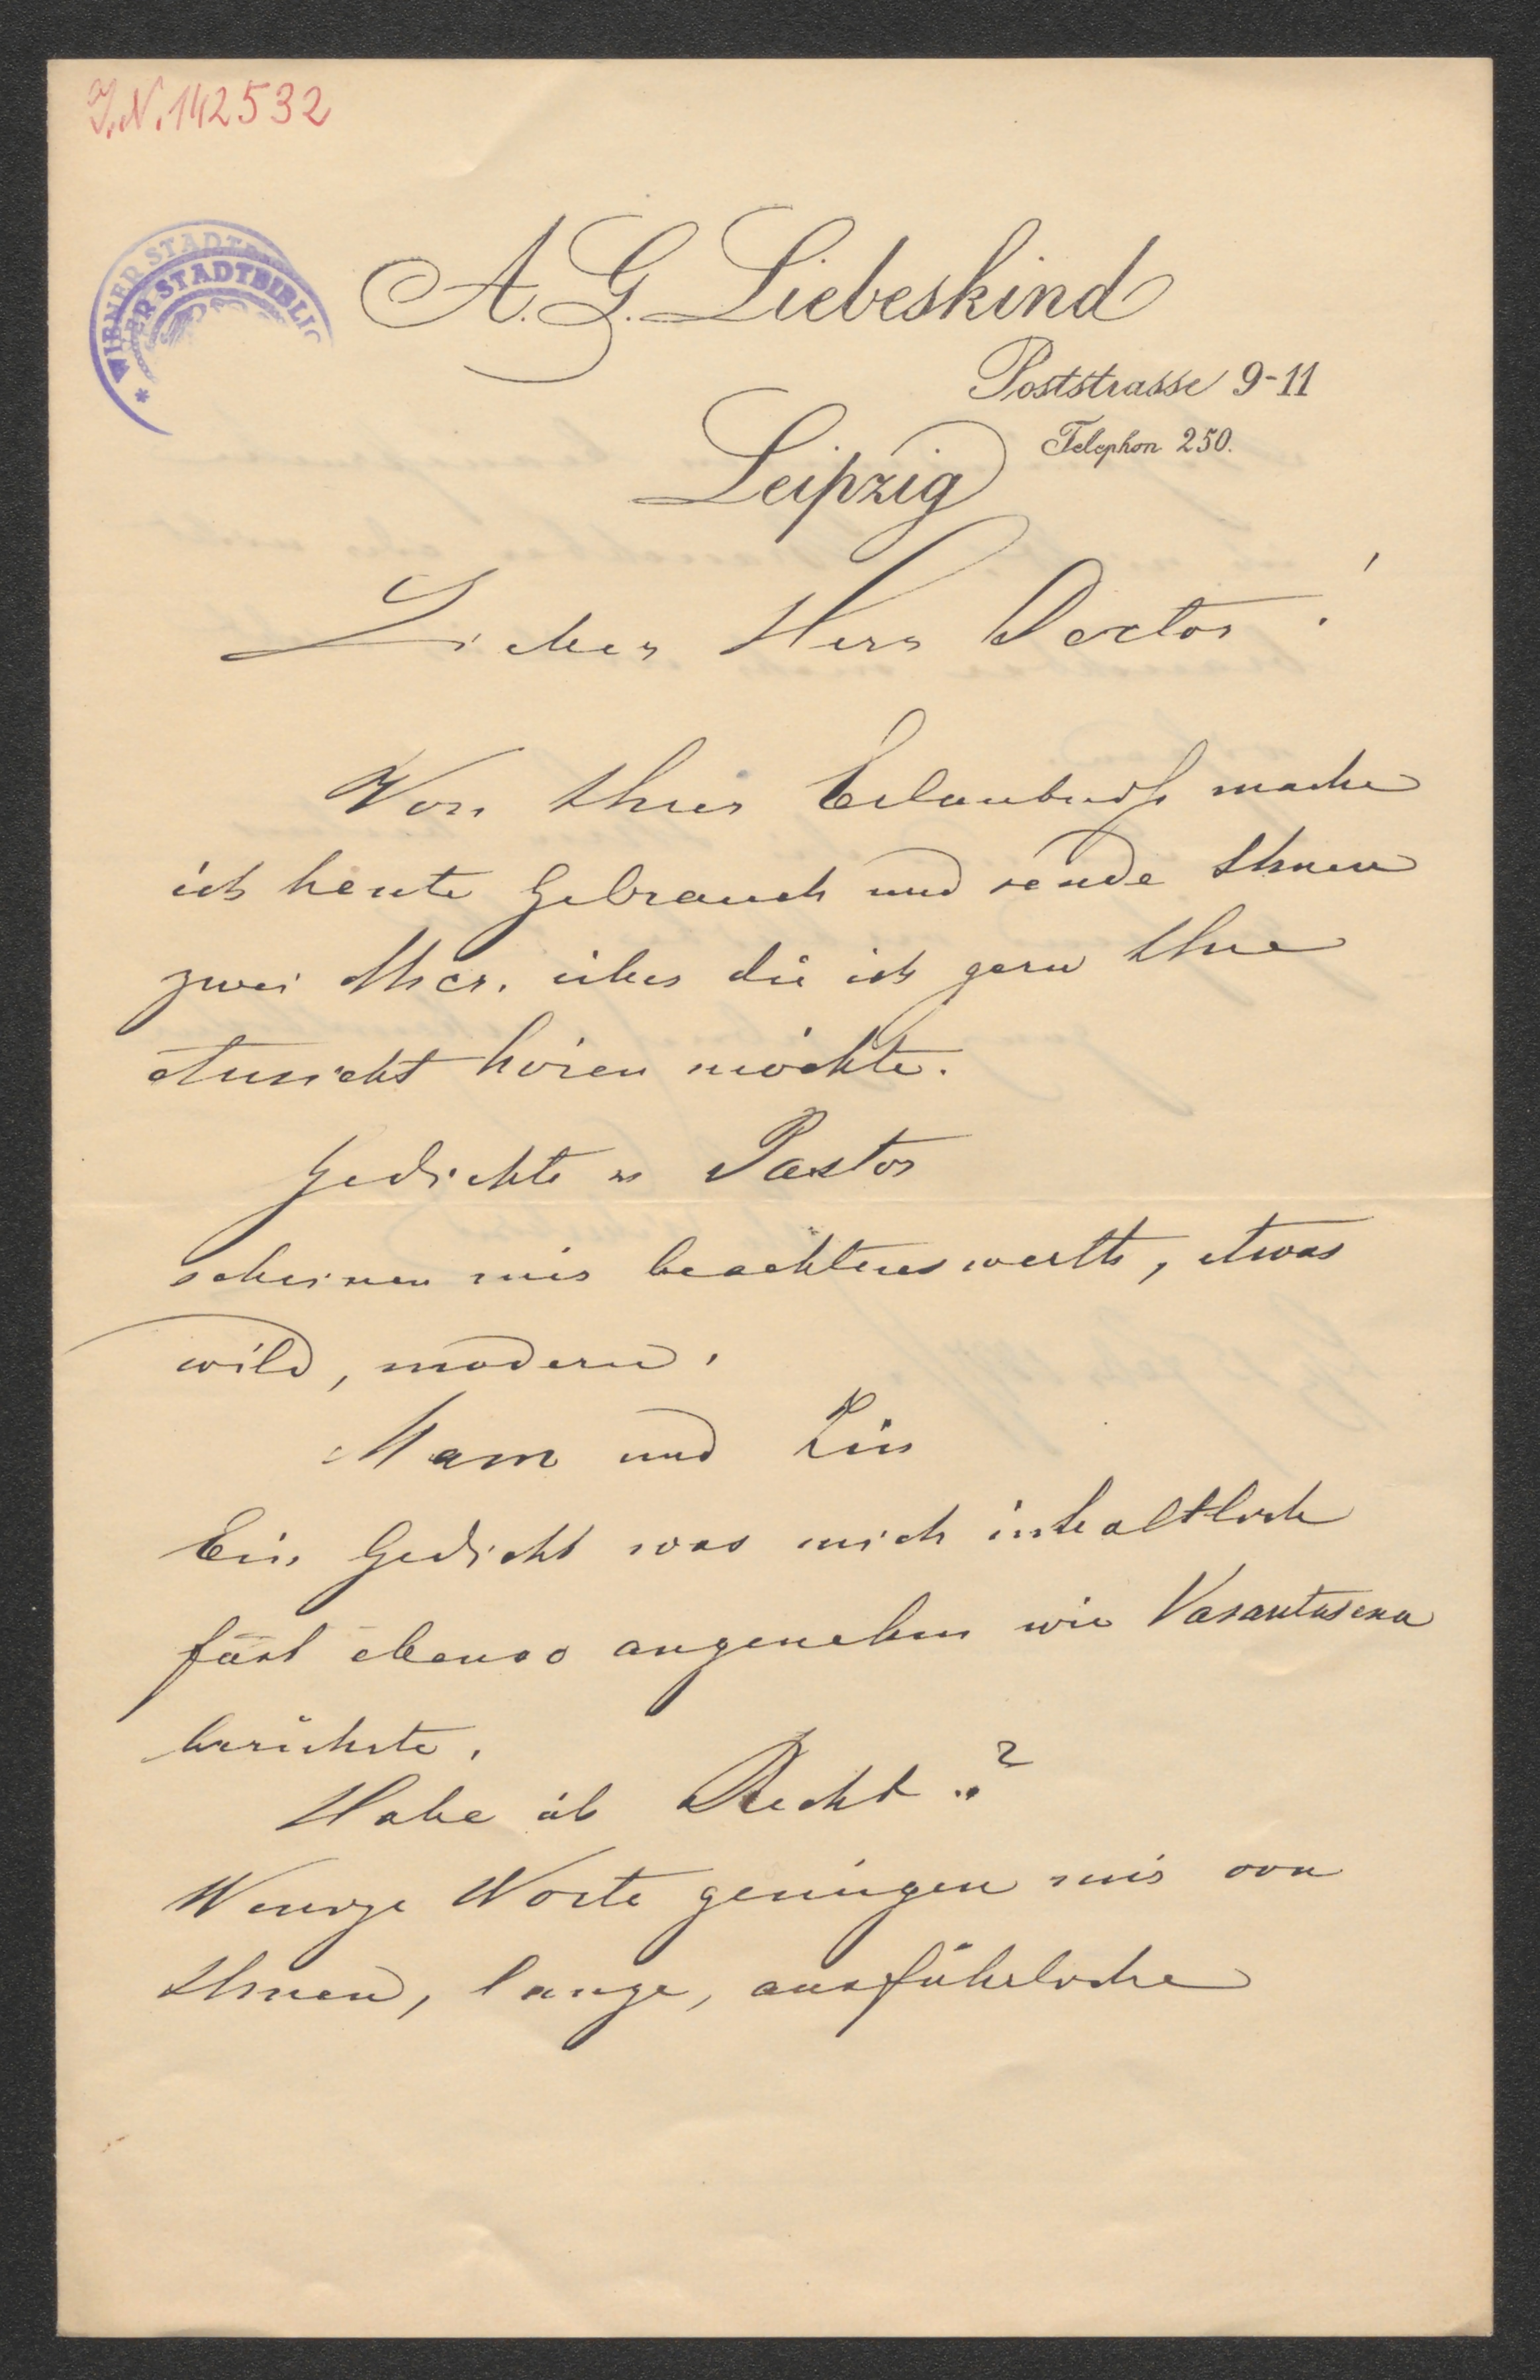 J.N. 142532
WIENER STADTB
WIENER STADTBIBLIO
A. G. Liebeskind
Poststrasse 9-11
Telephon 250.
Leipzig
Lieber Herr Doctor!
Von Ihrer Erlaubniß mache
ich heute Gebrauch und sende Ihnen
zwei Mscr. über die ich gern Ihre
Ansicht hören möchte.
Gedichte v Pastor
scheinen mir beachtenswerth, etwas
wild, modern.
Mann und
Ein Gedicht was mich inhaltlich
fast ebenso angenehm wie Vasantasena
berührte.
Habe ich Recht?
Wenige Worte genügen mir von
Ihnen, lange, ausführliche